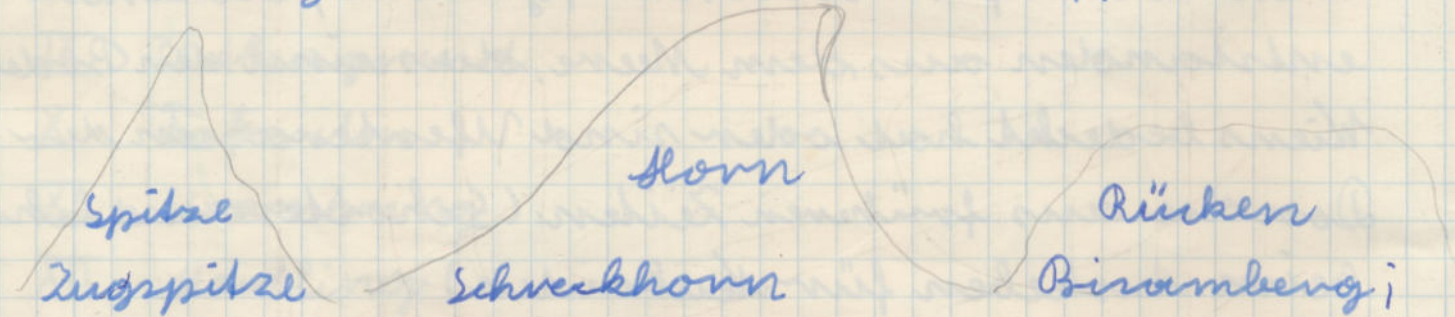 Spitze
Zugspitze
Horn
Schreckhorn
Rücken
Bisamberg;